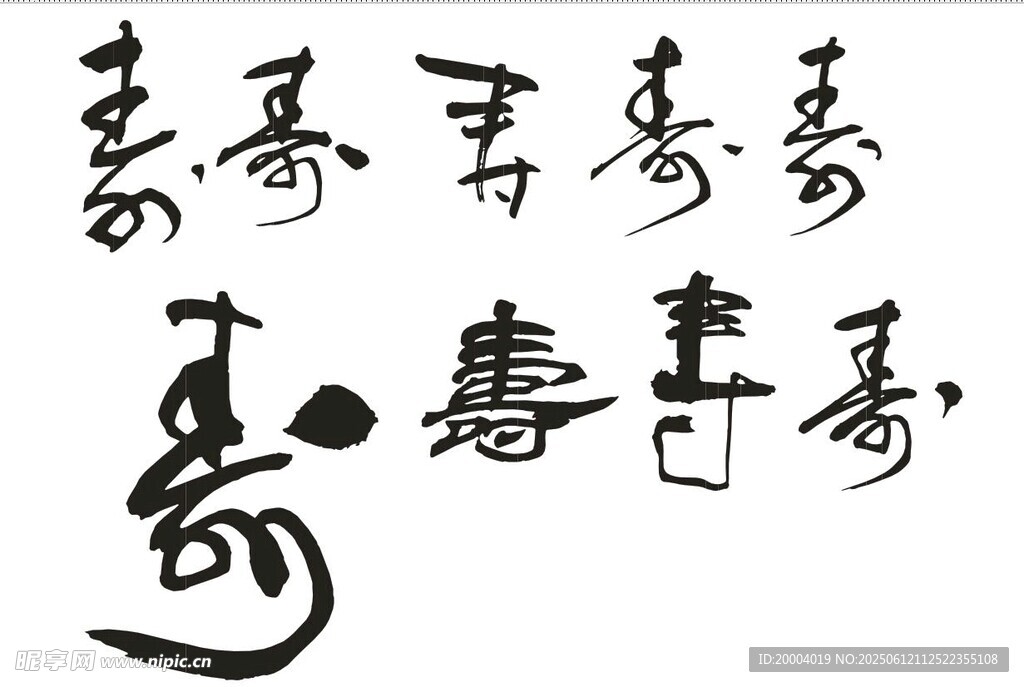 寿寿寿寿寿
寿壽寿寿
昵享网 www.nipic.cn
ID:20004019 NO:20250612112522355108